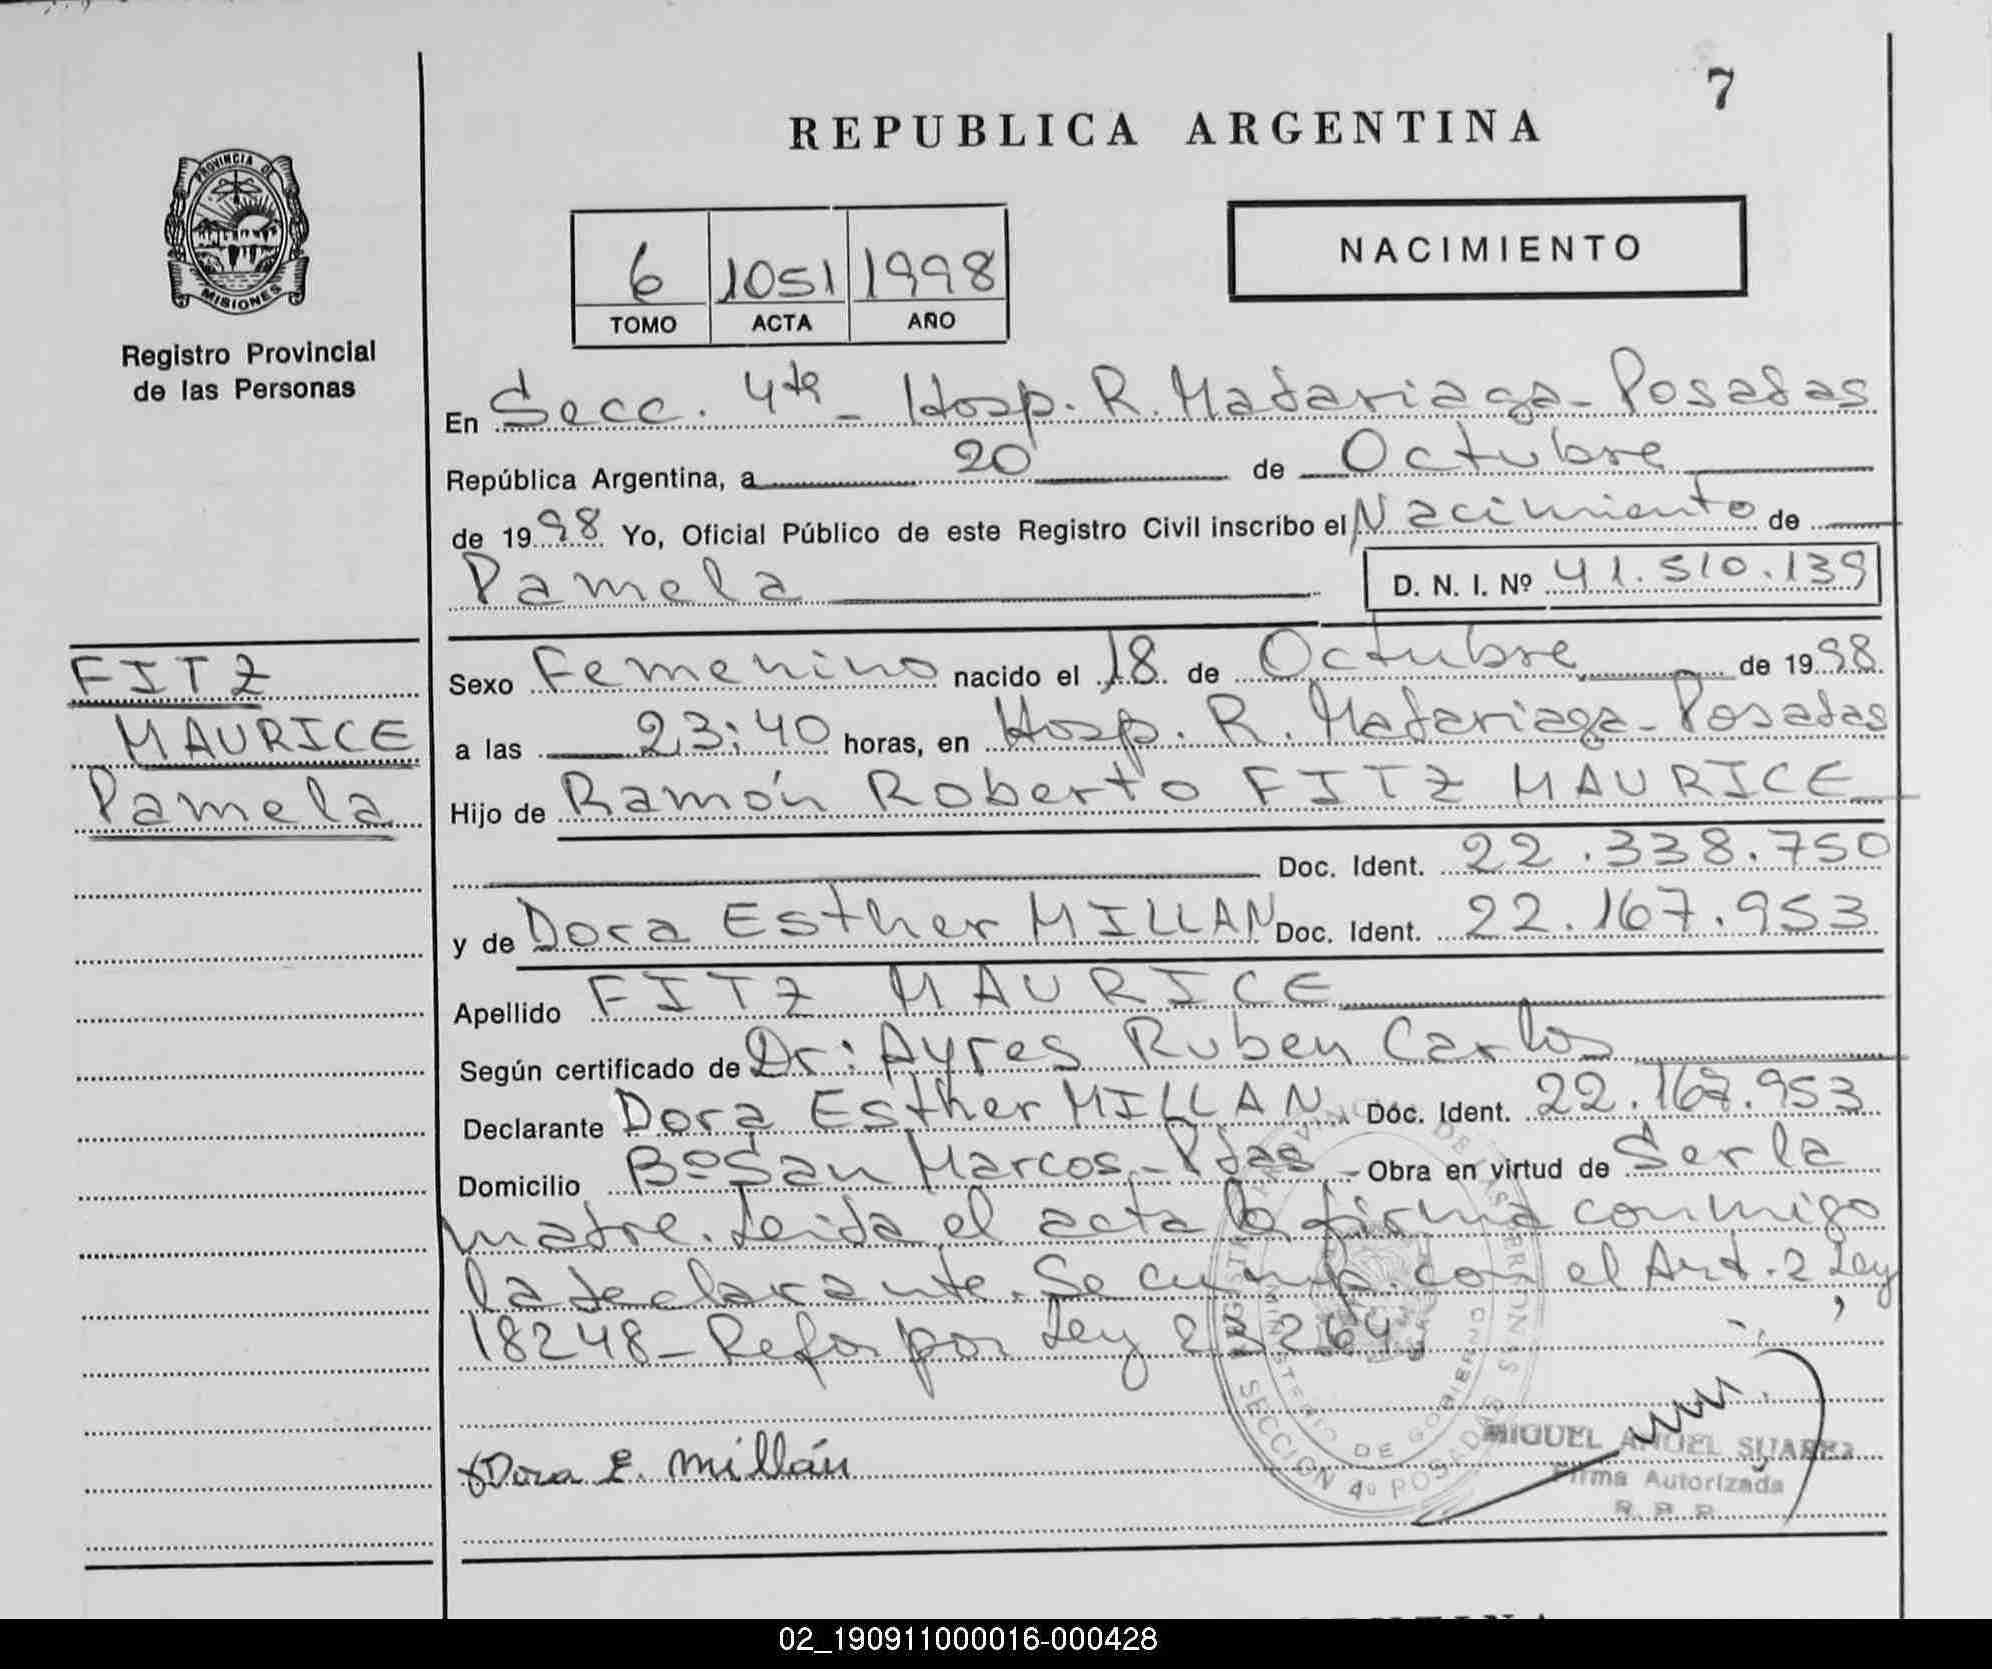 7
REPUBLICA ARGENTINA
PROVINCIA DE MISIONES
Registro Provincial
de las Personas
6 1051 1998
TOMO ACTA AÑO
NACIMIENTO
En Secc. 4ta - Hosp. R. Madariaga - Posadas
República Argentina, a 20 de Octubre
de 1998 Yo, Oficial Público de este Registro Civil inscribo el Nacimiento de
Pamela D. N. I. Nº 41.510.139
FITZ
MAURICE
Pamela
Sexo Femenino nacido el 18 de Octubre de 1998.
a las 23:40 horas, en Hosp. R. Madariaga - Posadas
Hijo de Ramón Roberto FITZ MAURICE
Doc. Ident. 22.338.750
y de Dora Esther MILLAN Doc. Ident. 22.167.953
Apellido FITZ MAURICE
Según certificado de Dr: Ayres Ruben Carlos
Declarante Dora Esther MILLAN Doc. Ident. 22.167.953
Domicilio Bº San Marcos - Pdas - Obra en virtud de Ser la
madre. Leida el acta la firma conmigo
la declarante. Se cump. con el Art. 2 Ley
18248 - Refor por Ley 23264
Dora E. Millán
SECCION 4º POSADAS
MINISTERIO DE GOBIERNO
MIGUEL ANGEL SUAREZ
Firma Autorizada
R. P. P.
02_190911000016-000428